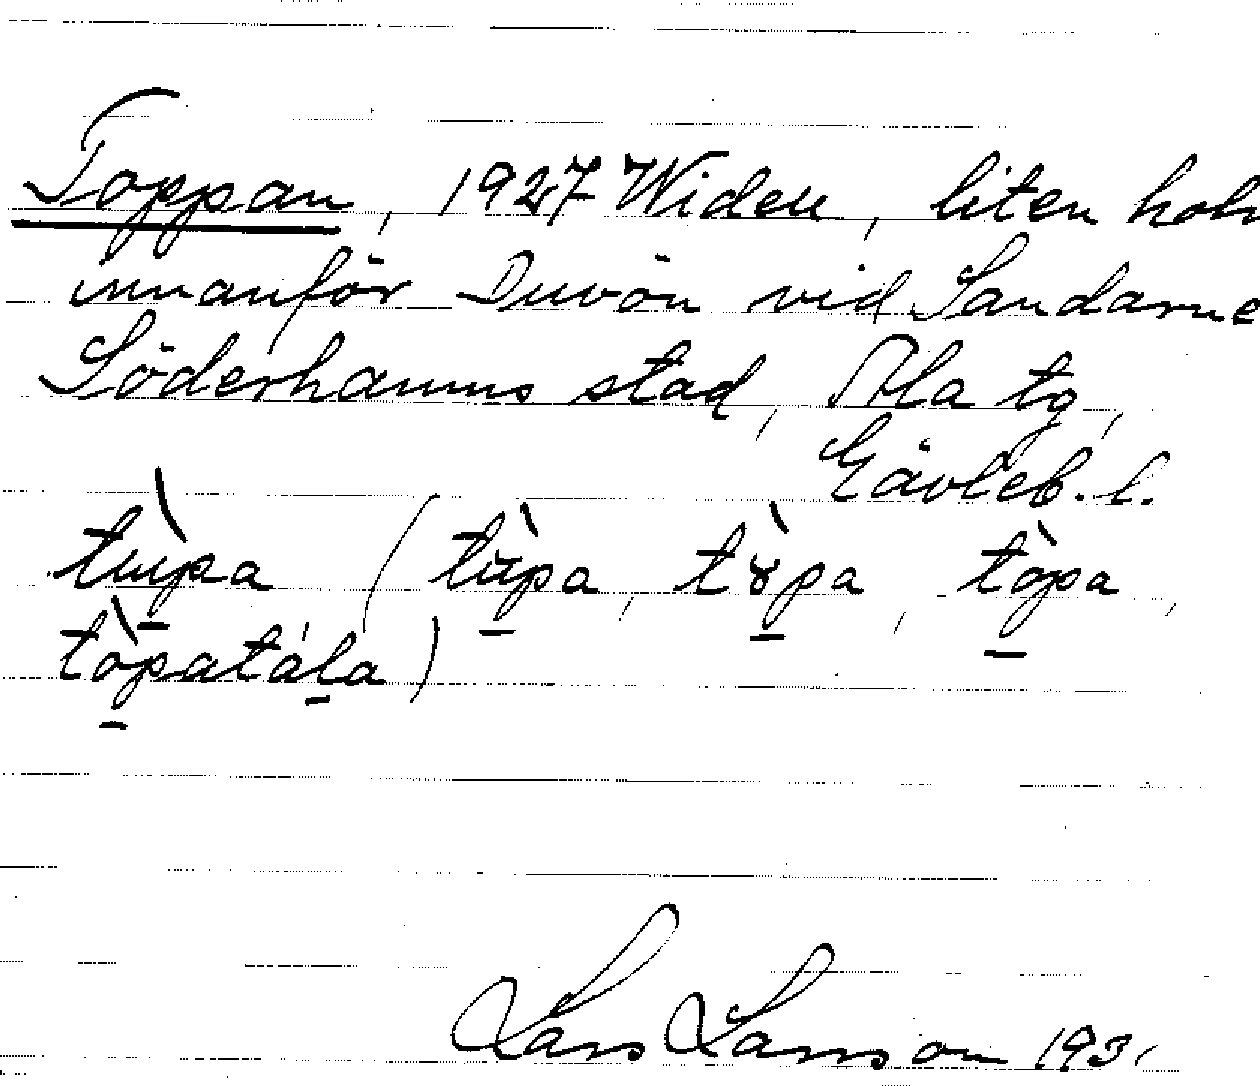 Toppan, 1927 Widén, liten holm
innanför Duvön vid Sandarne
Söderhamns stad, Ala tg,
Gävleb. l.
tɯ̀pa (tɯ̈̀pa, tɤ̀pa, tòpa,
tòpatáḷa)
Lars Larsson 193